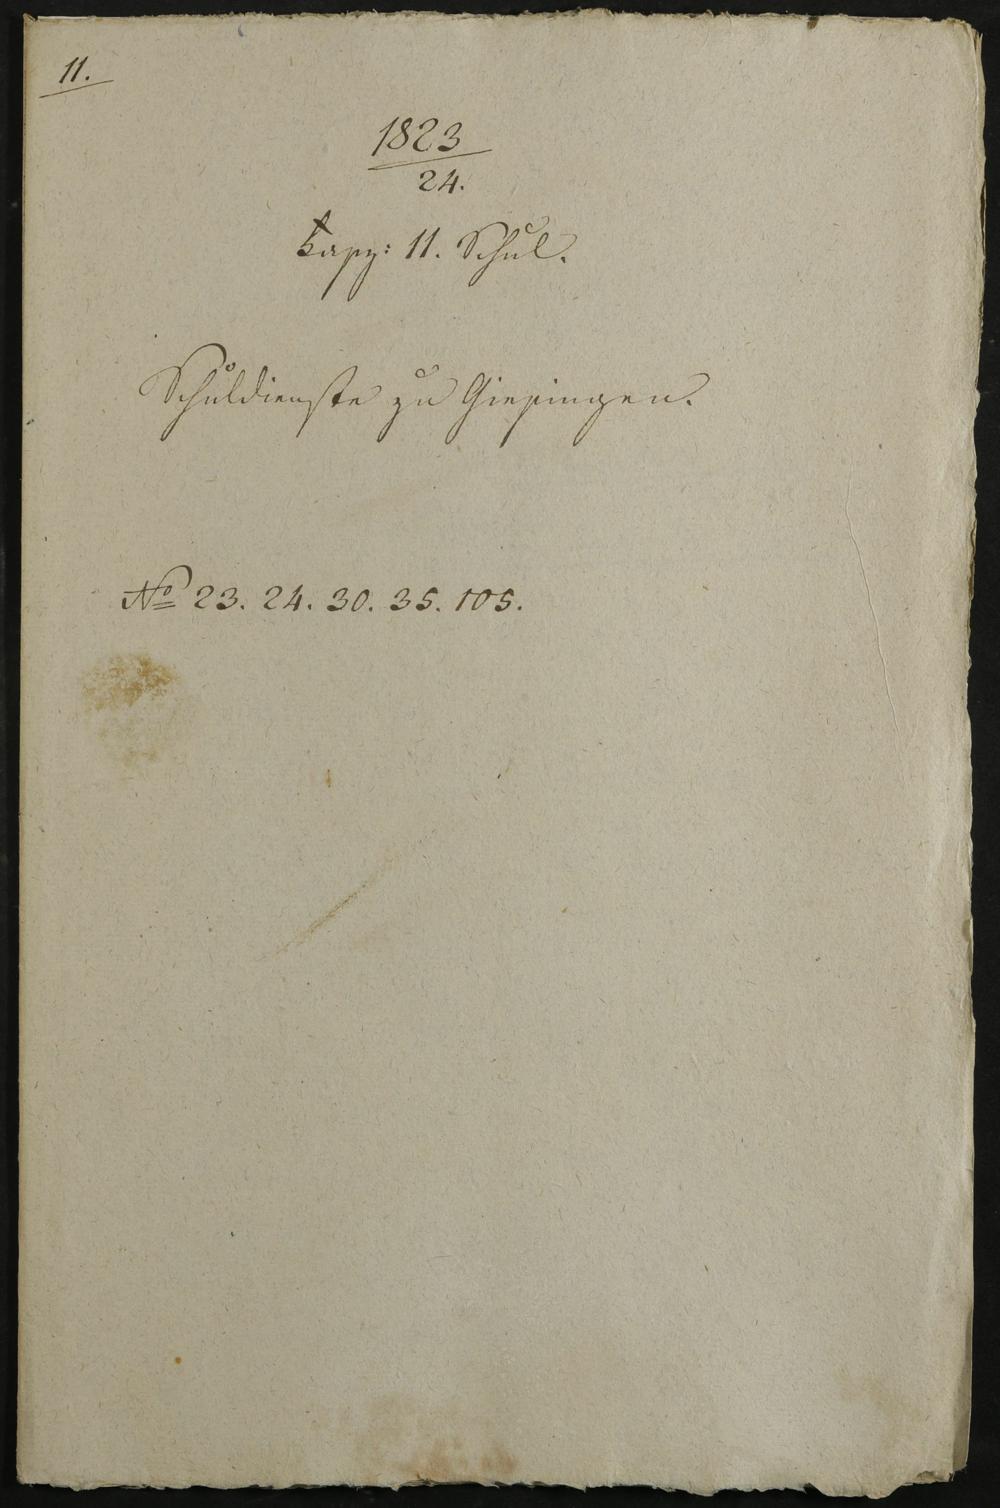 11.
1823
24.
11. Schul.
Schuldienste zu Giesingen.
No 23. 24. 30. 35. 105.